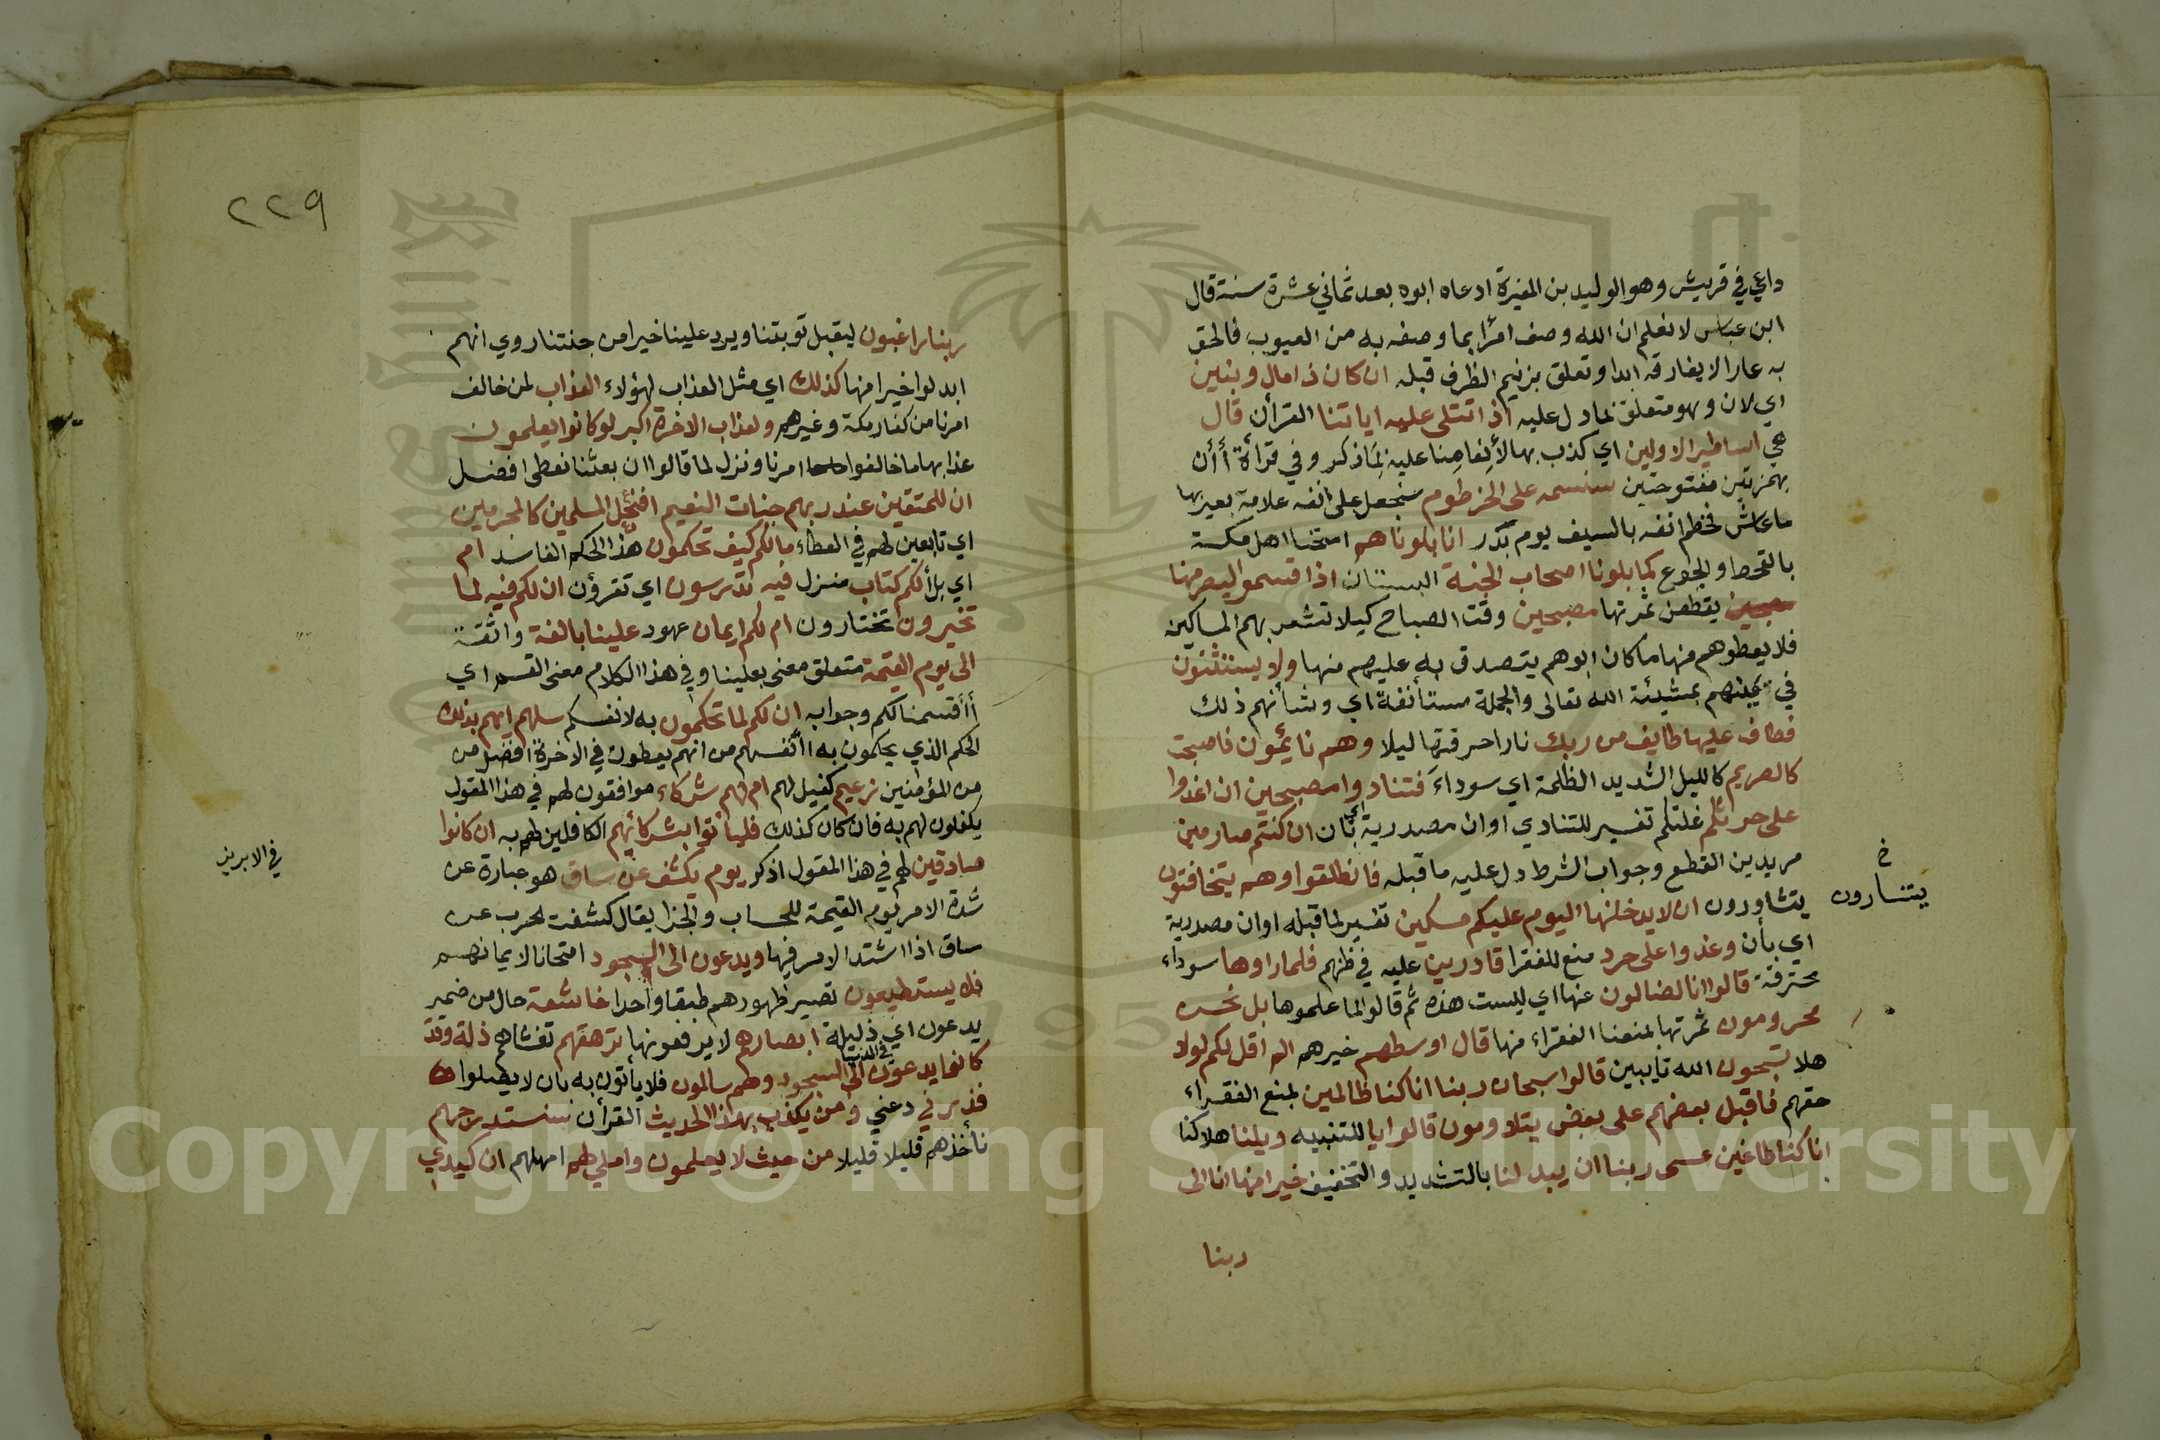 داعي في قريش وهو الوليد بن المغيرة ادعاه ابوه بعد ثماني عشرة سنة قال
ابن عباس لا نعلم ان الله وصف امرأ بما وصفه به من العيوب فالحق
به عارا لا يفارقه ابدا وتعلق بزنيم الظرف قبله ان كان ذا مال وبنين
اي لان وهو متعلق بما دل عليه اذا تتلى عليه اياتنا القرأن قال
هي اساطير الاولين اي كذب بها لأنعامنا عليه بما ذكر وفي قرأة أأن
بهمزتين مفتوحتين سنسمه على الخرطوم سنجعل على انفه علامة يعير بها
ما عاش فخطم انفه بالسيف يوم بدر انا بلوناهم امتحنا اهل مكة
بالقحط والجوع كما بلونا اصحاب الجنة البستان اذ اقسموا ليصرمنها
يقطعن ثمرتها مصبحين وقت الصباح كيلا تشعر بهم المساكين
فلا يعطوهم منها ما كان ابوهم يتصدق به عليهم منها ولا يستثنون
في يمينهم بمشيئة الله تعالى والجملة مستأنفة اي وشأنهم ذلك
فطاف عليها طايف من ربك نارا حرقتها ليلا وهم نائمون فاصبحت
كالصريم كالليل الشديد الظلمة اي سوداء فتنادوا مصبحين ان اغدوا
على حرثكم غلتكم تفسير للتنادي او ان مصدرية اي بان ان كنتم صارمين
مريدين القطع وجواب الشرط دل عليه ما قبله فانطلقوا وهم يتخافتون
يتشاورون ان لا يدخلنها اليوم عليكم مسكين تفسير لما قبله او ان مصدرية
اي بأن وغدوا على حرد منع للفقرا قادرين عليه في ظنهم فلما راوها سوداء
محترقة قالوا انا لضالون عنها اي ليست هذه ثم قالوا لما علموها بل نحن
محرومون ثمرتها بمنعنا الفقراء منها قال اوسطهم خيرهم الم اقل لكم لولا
هلا تسبحون الله تايبين قالوا سبحان ربنا انا كنا ظالمين بمنع الفقراء
حقهم فاقبل بعضهم على بعض يتلاومون قالوا يا للتنبيه ويلنا هلاكنا
انا كنا طاغين عسى ربنا ان يبدلنا بالتشديد والتخفيف خيرا منها انا الى
ربنا
خ
يتسارون
٢٢٩
ربنا راغبون ليقبل توبتنا ويرد علينا خيرا من جنتنا روي انهم
ابدلوا خيرا منها كذلك اي مثل العذاب لهؤلاء العذاب لمن خالف
امرنا من كفار مكة وغيرهم ولعذاب الاخرة اكبر لو كانوا يعلمون
عذابها ما خالفوا امرنا ونزل لما قالوا ان بعثنا نعطى افضل
ان للمتقين عند ربهم جنات النعيم افنجعل المسلمين كالمجرمين
اي تابعين لهم في العطاء مالكم كيف تحكمون هذا الحكم الفاسد ام
اي بل ألكم كتاب منزل فيه تدرسون اي تقرؤن ان لكم فيه لما
تخيرون تختارون ام لكم ايمان عهود علينا بالغة واثقة
الى يوم القيمة متعلق معنى بعلينا وفي هذا الكلام معنى القسم اي
أأقسمنا لكم وجوابه ان لكم لما تحكمون به لانفسكم سلهم ايهم بذلك
الحكم الذي يحكمون به لانفسهم من انهم يعطون في الاخرة افضل من
من المؤمنين زعيم كفيل لهم ام لهم شركاء موافقون لهم في هذا المقول
يكفلون لهم به فان كان كذلك فليأتوا بشركائهم الكافلين لهم به ان كانوا
صادقين لهم في هذا المقول اذكر يوم يكشف عن ساق هو عبارة عن
شدة الامر يوم القيمة للحساب والجزا يقال كشفت لحرب عن
ساق اذا اشتد الامر فيها ويدعون الى السجود امتحانا لايمانهم
فلا يستطيعون تصير ظهورهم طبقا واحدا خاشعة حال من ضمير
يدعون اي ذليلة ابصارهم لا يرفعونها ترهقهم تغشاهم ذلة وقد
كانوا يدعون في الدنيا الى السجود وهم سالمون فلا يأتون به بان لا يصلوا
فذرني دعني ومن يكذب بهذا الحديث القرأن سنستدرجهم
نأخذهم قليلا قليلا من حيث لا يعلمون واملي لهم امهلهم ان كيدي
في الابريز
Copyright © King Saud University